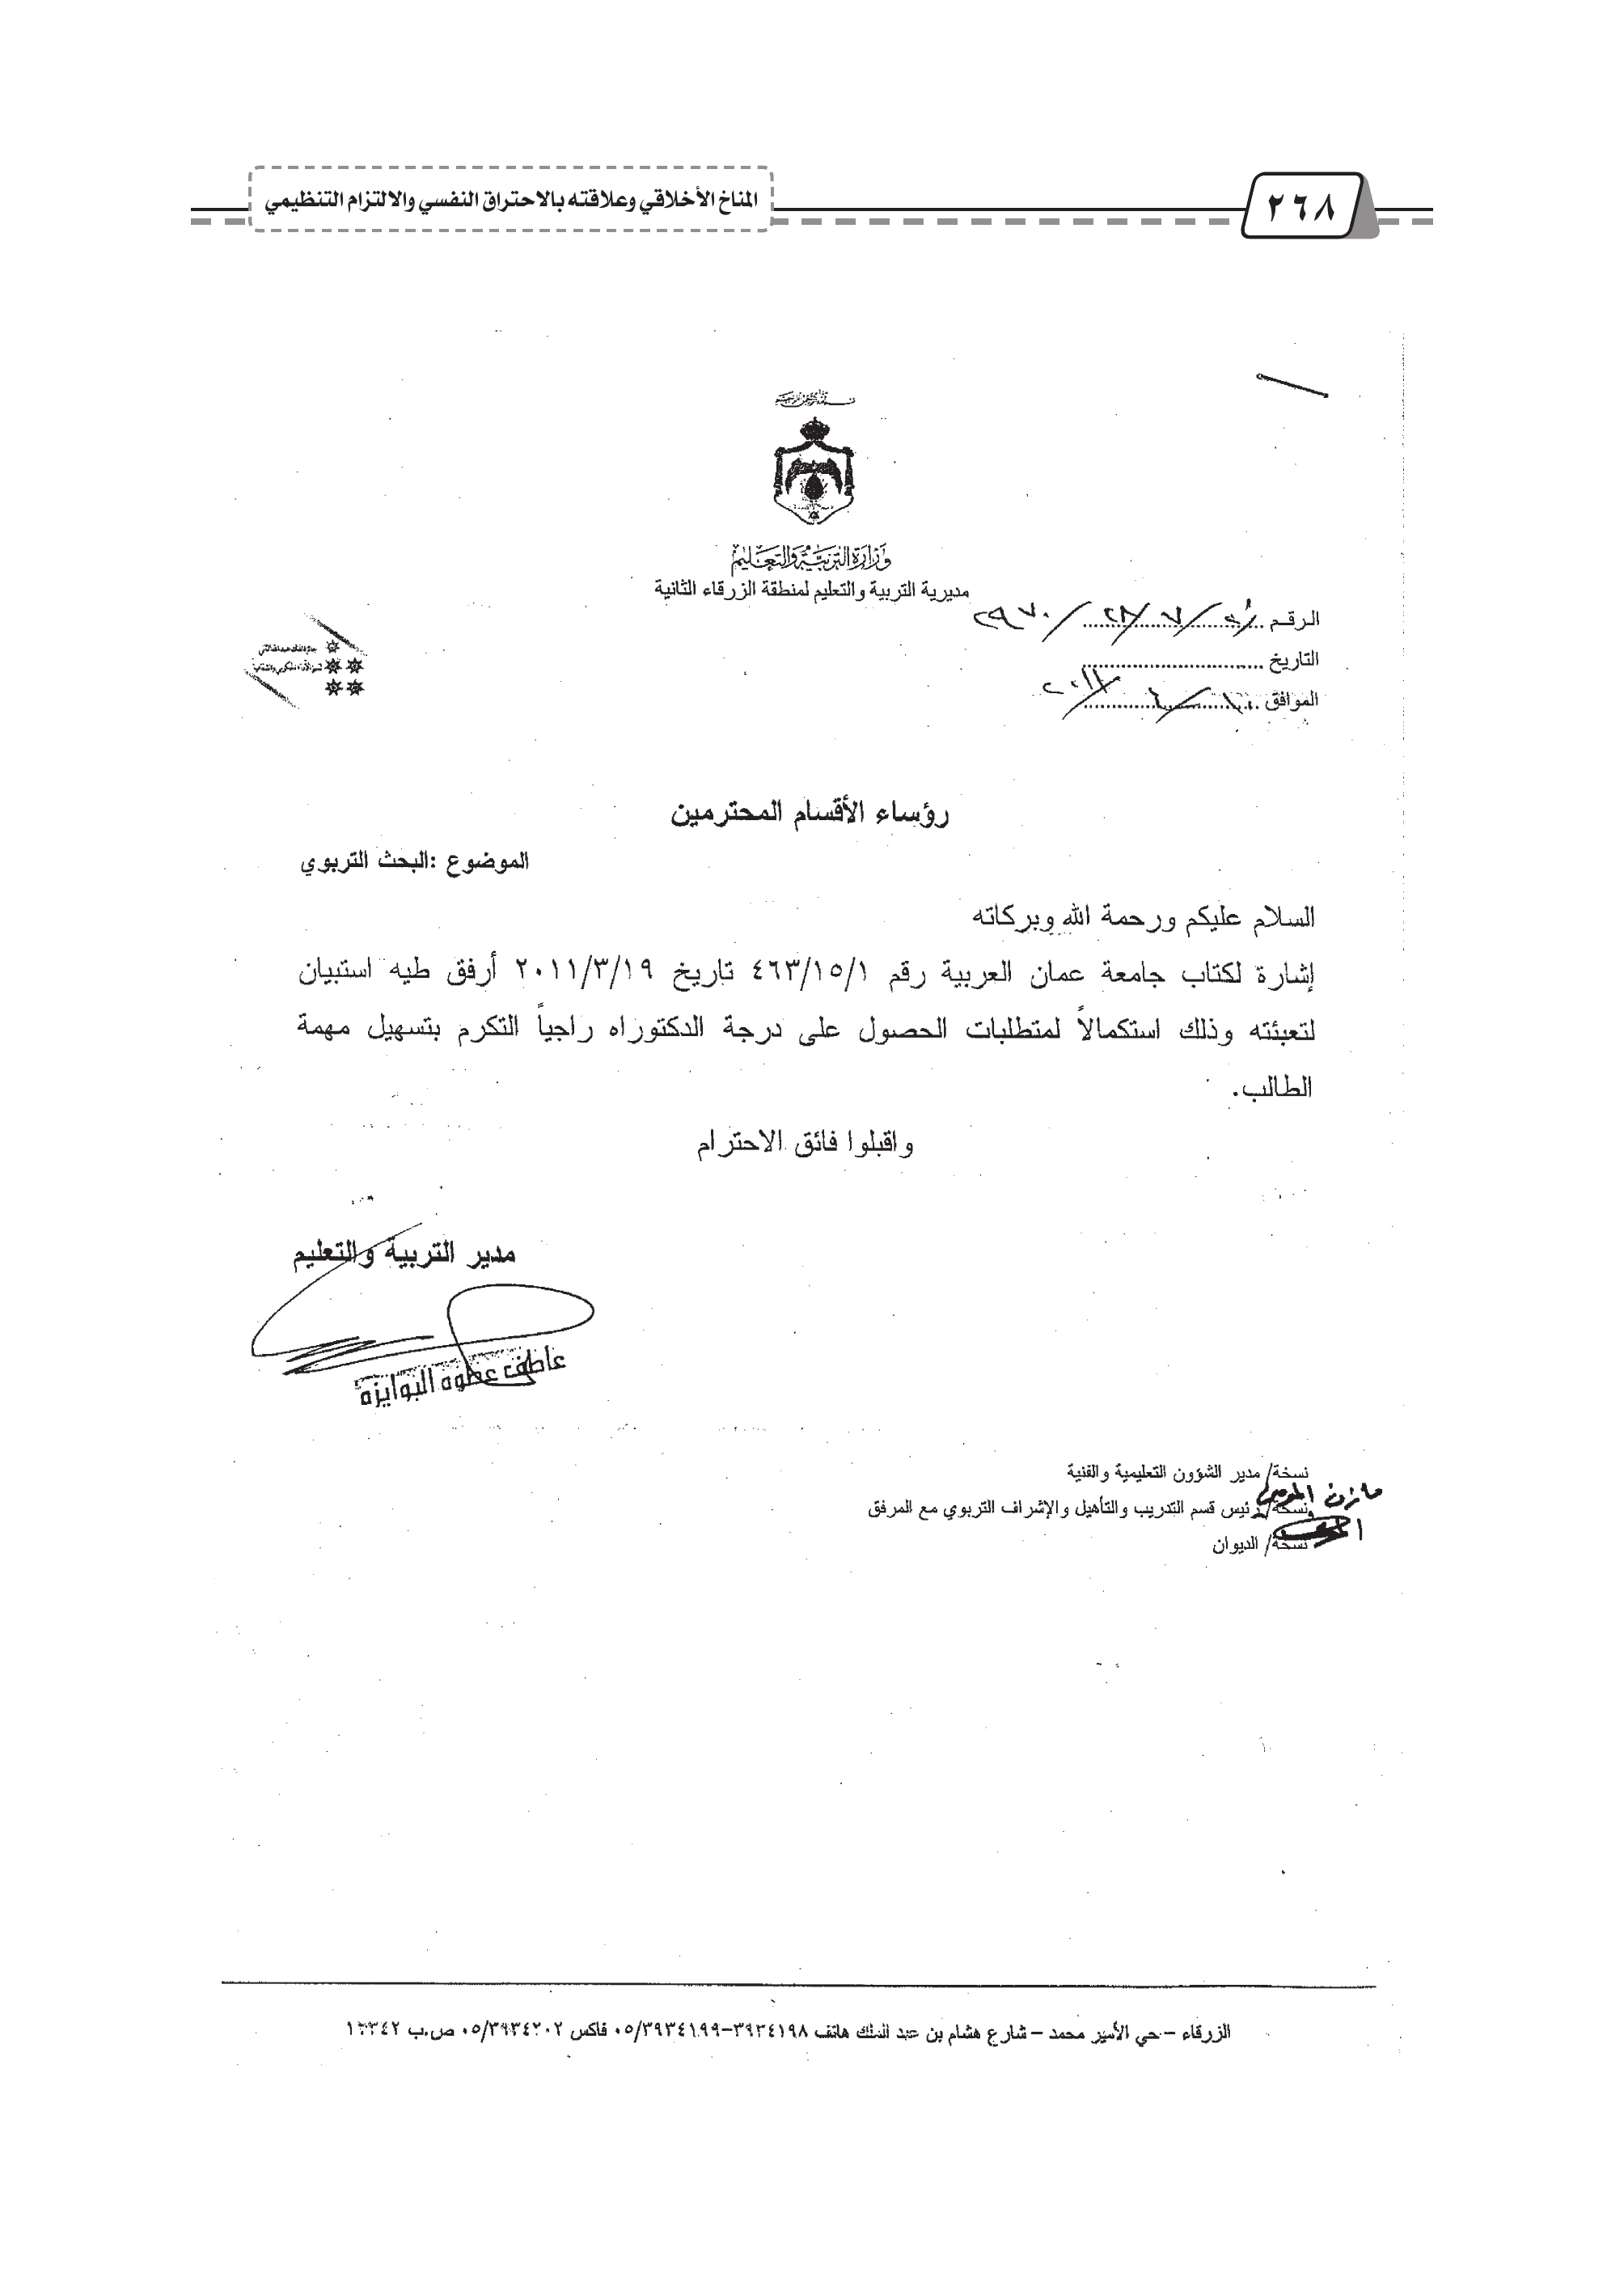 المناخ الأخلاقي وعلاقته بالاحتراق النفسي والالتزام التنظيمي
٢٦٨
وزارة التربية والتعليم
مديرية التربية والتعليم لمنطقة الزرقاء الثانية
الرقم
التاريخ
الموافق
رؤساء الأقسام المحترمين
الموضوع :البحث التربوي
السلام عليكم ورحمة الله وبركاته
إشارة لكتاب جامعة عمان العربية رقم ٤٦٣/١٥/١ تاريخ ٢٠١١/٣/١٩ أرفق طيه استبيان
لتعبئته وذلك استكمالاً لمتطلبات الحصول على درجة الدكتوراه راجياً التكرم بتسهيل مهمة
الطالب.
واقبلوا فائق الاحترام
مدير التربية والتعليم
عاطف عطوه البوايزه
نسخة/ مدير الشؤون التعليمية والفنية
نسخة/ رئيس قسم التدريب والتأهيل والإشراف التربوي مع المرفق
نسخة/ الديوان
الزرقاء – حي الأمير محمد – شارع هشام بن عبد الملك هاتف ٣٩٣٤١٩٨–٠٥/٣٩٣٤١٩٩ فاكس ٠٥/٣٩٣٤٢٠٢ ص.ب